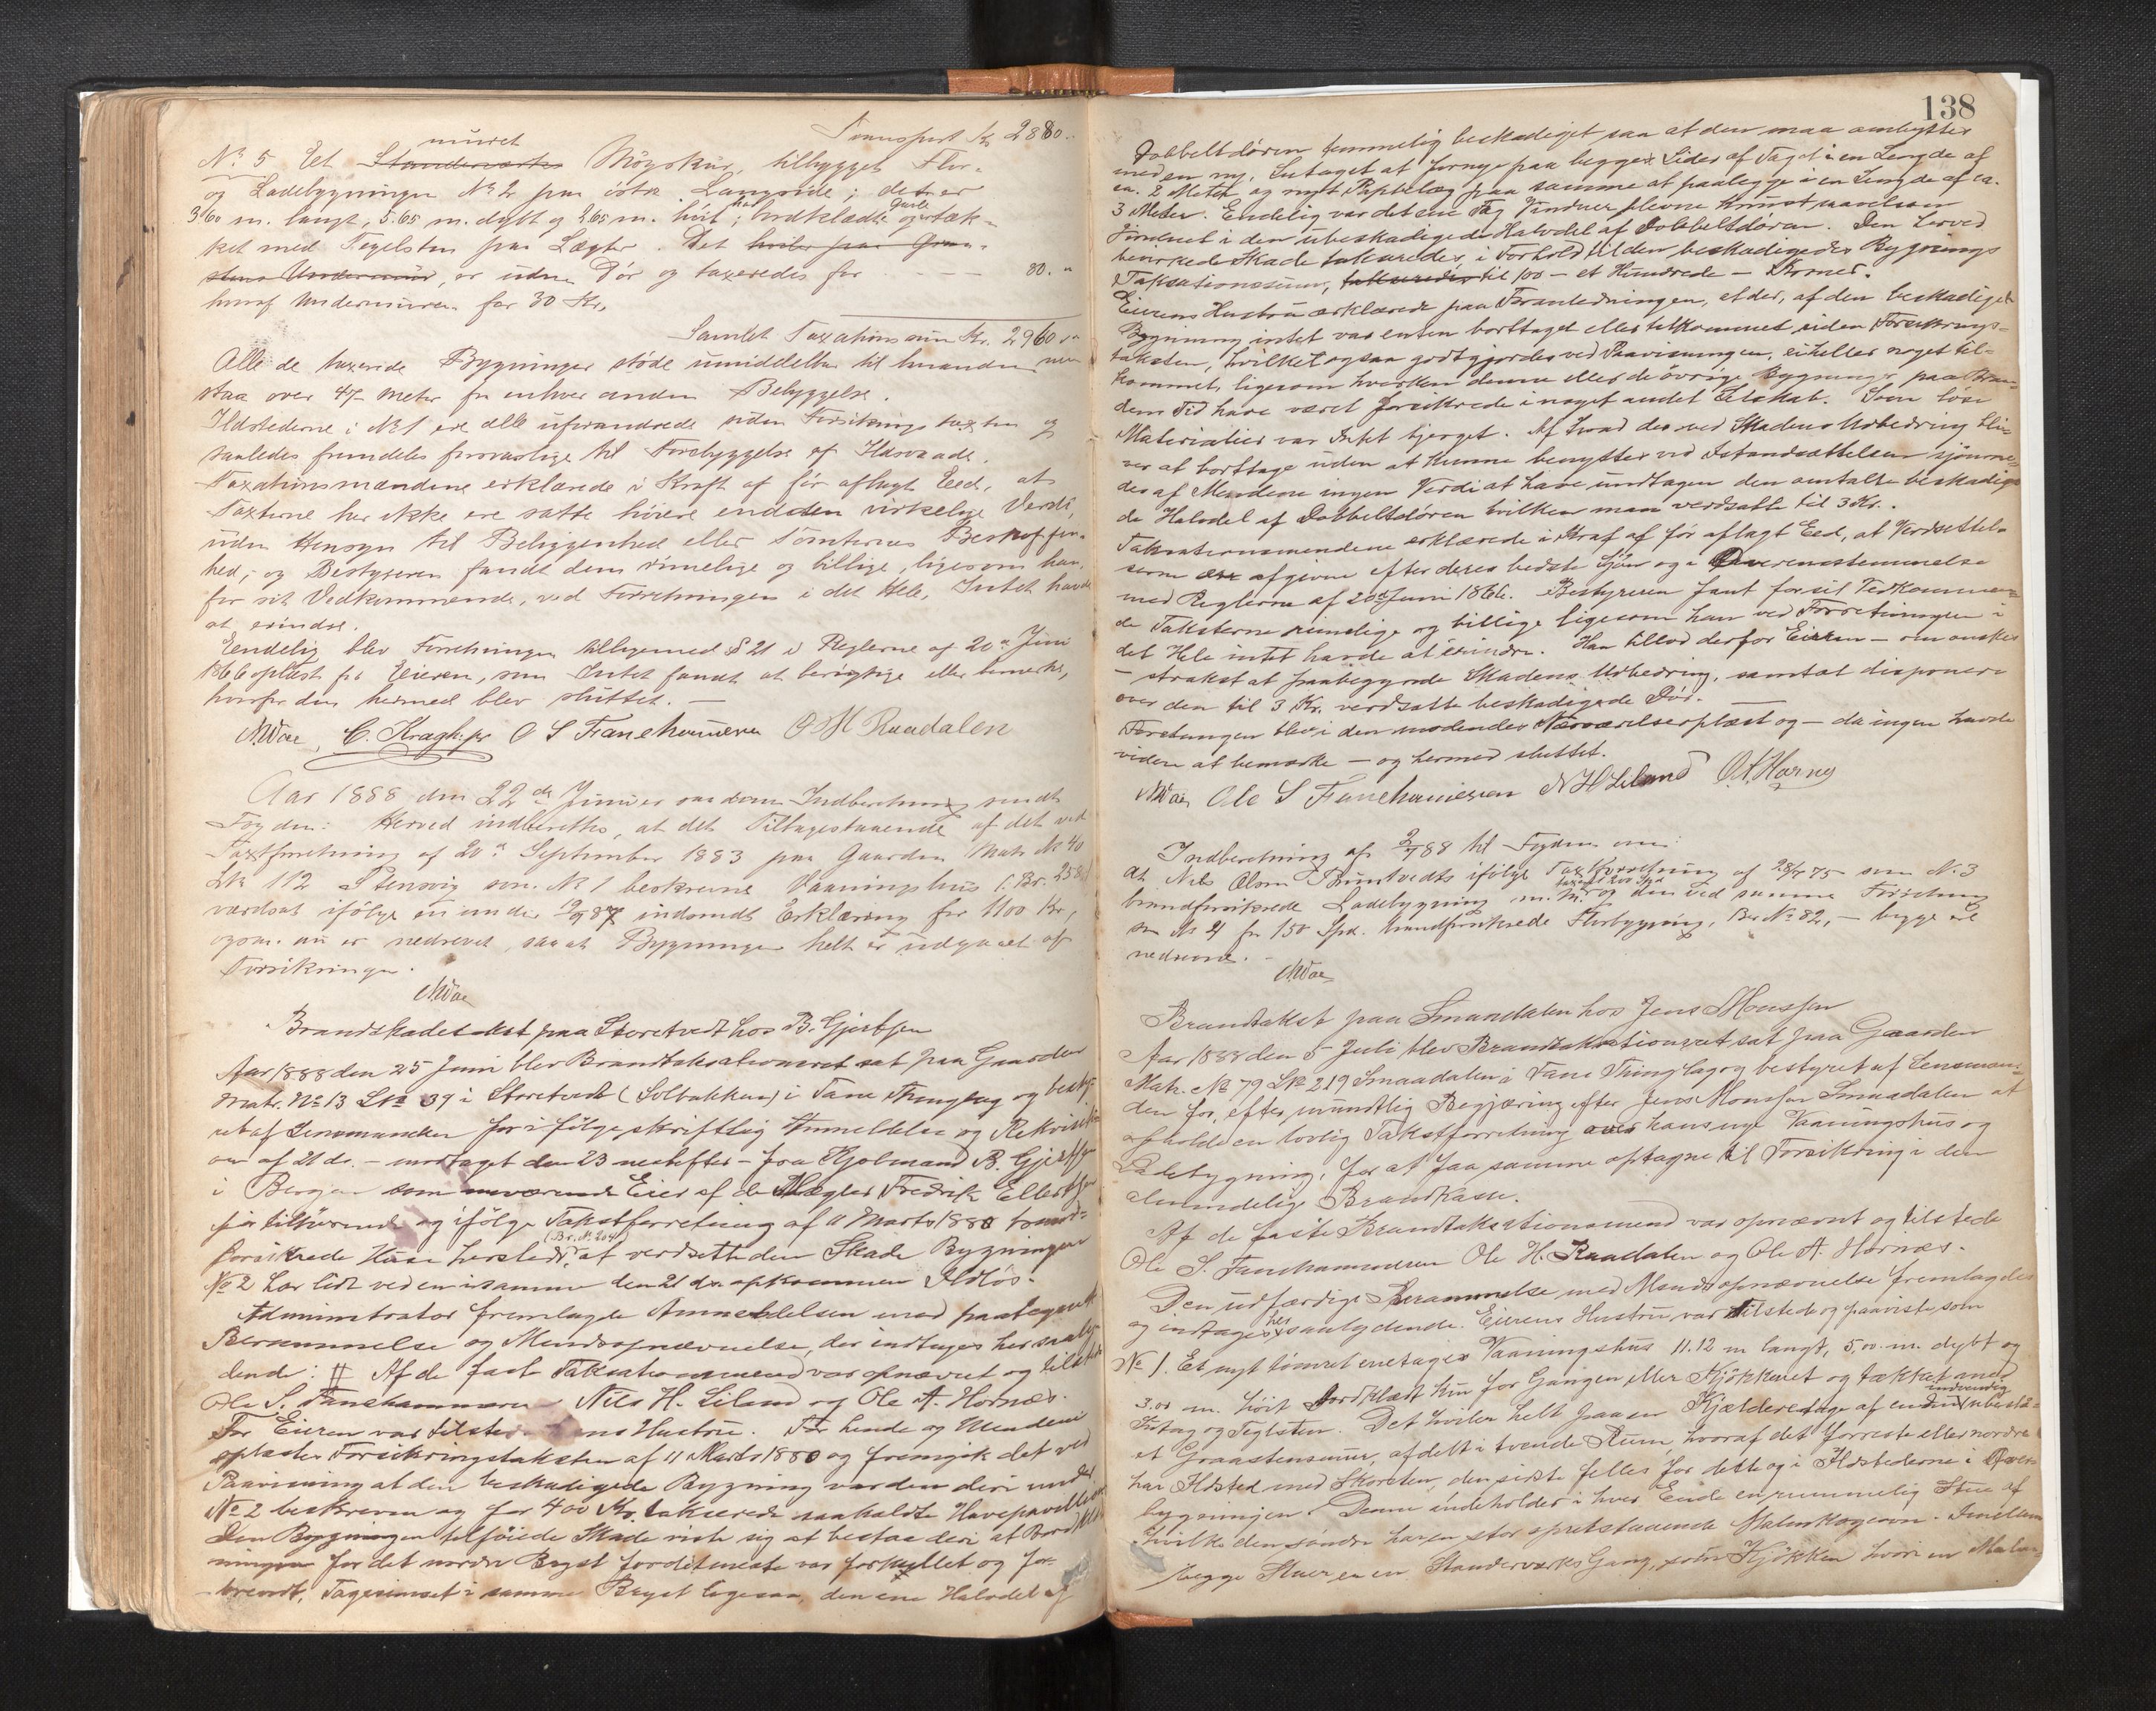 Transport Kr 2880..
muret
No 5 Et Standerværks Mögskur, tilbygget Flor-
og Ladebygningen No 2 paa östre Langside; det er
3.60 m. langt, 5.65 m. dybt og 2.65 m. höit; har bordklædte Gavle og tæk-
ket med Tegelsten paa Lægter. Det hviler paa Graa-
stens Undermuur, er uden Dör og taxeredes for - - - - 80. "
hvoraf Undermuren for 30 Kr.
Samlet Taxationssum Kr. 2960 "
Alle de taxerede Bygninger stöde umiddelbar til hinanden men
staa over 47 Meter fra enhver anden Bebyggelse.
Ildstederne i No 1 ere alle uforandrede siden Forsikringstaxten og
saaledes fremdeles forsvarlige til Forebyggelse af Ildsvaade.
Taxationsmændene erklærede i Kraft af för aflagt Eed, at
Taxterne her ikke ere satte höiere end den virkelige Verdi,
uden Hensyn til Beliggenhed eller Tomternes Beskaffen-
hed; og Bestyreren fandt dem rimelige og billige, ligesom han,
for sit Vedkommende, ved Forretningen i det Hele, Intet havde
at erindre.
Endelig blev Forretningen tilligemed § 21 i Reglerne af 20de Juni
1866 oplæst for Eieren, som Intet fandt at berigtige eller bemærke,
hvorfor den hermed blev sluttet. —
NWae, C. Kragh jr O S Fanehammeren O H Raadalen
Aar 1888 den 22de Juni er saadan Indberetning sendt
Fogden: Herved indberettes, at det Tilbagestaaende af det ved
Taxtforretning af 20de September 1883 paa Gaarden Matr No 40
LNo 112 Stensvig som No 1 beskrevne Vaaningshus (: Br. 258
værdsat ifölge en under 19/9 87 indsendt Erklæring for 1100 Kr,
ogsaa nu er nedrevet, saa at Bygningen helt er udgaaet af
Forsikringen.
NWae
Brandskadetakst paa Storetvedt hos B. Gjertsen
Aar 1888 den 25 Juni blev Brandtaksationsret sat paa Gaarden
Matr. No 13 LNo 39 i Storetvedt (Solbakken) i Fane Thinglag og besty-
ret af Lensmanden for ifölge skriftlig Anmeldelse og Rekvisiti-
on af 21 ds. — modtaget den 23 nestefter — fra Kjøbmand B. Gjertsen
i Bergen som nuværende Eier af de Mægler Fredrik Ellertsen
för tilhörende og ifölge Takstforretning af 11 Marts 1880 brand-
forsikrede Huse hersteds, (Br. No 204) at verdsætte den Skade Bygningen
No 2 har lidt ved en i samme den 21 ds. opkommen Ildlös-
Administrator fremlagde Anmeldelsen med paategnet
Berammelse og Mendsopnævnelse, der indtages her saaly-
dende: # Af de fast Taksationsmend var opnævnt og tilstede
Ole S. Fanehammeren Nils H. Liland og Ole A. Hornæs.
For Eieren var tilstede hans Hustru. For hende og Mendene
oplæstes Forsikringstaksten af 11 Marts 1880 og fremgik det ved
Paavisning at den beskadigede Bygning var den deri under
No 2 beskreven og for 400 Kr. takserede saakaldte Havepavillion
Den Bygningen tilföiede Skade viste sig at bestaa deri at Bordklæd-
ningen for det nordre Bryst fordetmeste var forkullet og for-
brendt, Tagesimset i samme Bryst ligesaa, den ene Halvdel af
138
Dobbeltdören temmelig beskadiget saa at den maa ombyttes
med en ny. Sutaget at fornye paa begge Sider af Taget i en Lengde af
ca. 2 Meter og nyt Papbelæg paa samme at paalegge i en Lengde af ca.
3 Meter. Endelig var det ene Fag Vinduer blevne knust
Vinduet i den ubeskadigede Halvdel af Dobbeltdören. Den herved
bevirkede Skade takseredes, i Forhold til den beskadigedes Bygnings
Taksationssum, takseredes til 100 — et Hundrede — Kroner.
Eierens Hustru erklærede paa Foranledningen, at der, af den beskadigede
Bygning intet var enten borttaget eller tilkommet siden Forsikrings-
taksten, hvilket ogsaa godtgjordes ved Paavisningen, ei heller noget til-
kommet, ligesom hverken denne eller de övrige Bygninger paa Bran-
dens Tid have været forsikrede i noget andet Selskab. Som löse
Materialier var Intet bjerget. Af hvad der ved Skadens Udbedring bli-
ver at borttage uden at kunne benyttes ved Istandsættelsen skjönne-
des af Mendene ingen Verdi at have undtagen den omtalte beskadige-
de Halvdel af Dobbeltdören hvilken man verdsatte til 3 Kr.
Taksationsmendene erklærede i Kraf af för aflagt Eed, at Verdsettel-
serne ere afgivne efter deres bedste Skjön og i Overensstemmelse
med Reglerne af 20de Juni 1866. Bestyreren fant for sit Vedkommen-
de Taksterne rimelige og billige ligesom han ved Forretningen i
det Hele intet havde at erindre. Han tillod derfor Eieren — om önskes
— strakst at paabegynde Skadens Udbedring, samtat disponere
over den til 3 Kr. verdsatte beskadigede Dör.
Forretningen blev i den modendes Nærværelse oplæst og — da ingen havde
videre at bemærke — og hermed sluttet.
NWae Ole S Fanehammeren N H Liland O A Hornes
Indberetning af 2/7 88 til Fogden om:
At Nils Olsen Smørtvedts ifölge Taxtforretning af 28/8 75 som N. 3
brandforsikrede Ladebygning m. M. og den ved samme Forretning
som No 4 for 150 Spd. brandforsikrede Florbygning, Br No 82, — begge ere
nedrevne. -
NWae
Brandtakst paa Smaadalen hos Jens Monssen
Aar 1888 den 5 Juli blev Brandtaksationsret sat paa Gaarden
Matr. No 79 LNo 219 Smaadalen i Fane Thinglag og bestyret af Lensman-
den for, efter mundtlig Begjæring efter Jens Monssen Smaadalen at
afholde en lovlig Takstforretning over hans nye Vaaningshus og
Ladebygning, for at faa samme optagne til Forsikring i den
almindelige Brandkasse.
Af de faste Brandtaksationsmend var opnævnt og tilstede
Ole S. Fanehammeren Ole H. Raadalen og Ole A. Hornæs.
Den udfærdige Berammelse med Mendsopnævnelse fremlagdes
og indtages her saalydende. Eierens Hustru var tilstede og paaviste som
No 1. Et nyt tömret enetages Vaaningshus 11.12 m langt, 5,00 m. dybt og
3.00 m. höit Bordklædt kun for Gangen eller Kjökkenet og tækket med
Sutag og Teglsten. Det hviler helt paa en Kjælderetage af en indvendig
et Graastensmuur, afdelt i tvende Rum, hvoraf det forreste eller nordre
har Ildsted med Skorsten, den sidste felles for dette og i Ildstederne i Over-
bygningen. Denne indeholder i hver Ende en rummelig Stue af
hvilke den söndre har en stor opretstaaende Malmkogeovn. Imellem
begge Stuer er en Standerværks Gang, som Kjökken hvori en Malm-